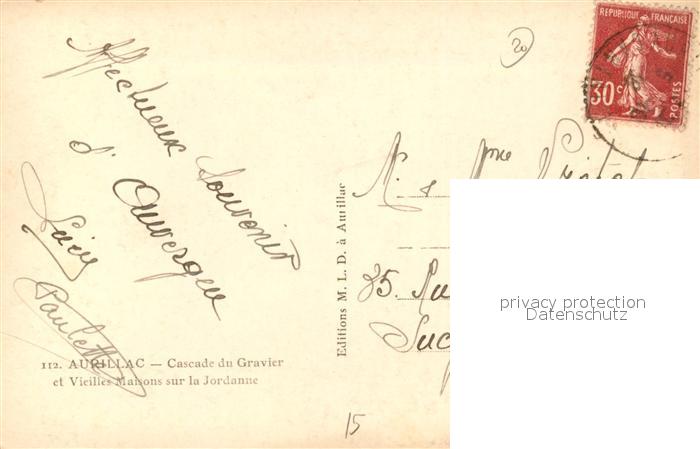 Affectueux Souvenir
d'Auvergne
Paulette
112. AURILLAC — Cascade du Gravier
et Vieilles Maisons sur la Jordanne
Editions M. L. D. à Aurillac
20
REPUBLIQUE FRANÇAISE
30c
POSTES
M. & Mme
85. Ru
Suc
privacy protection
Datenschutz
15